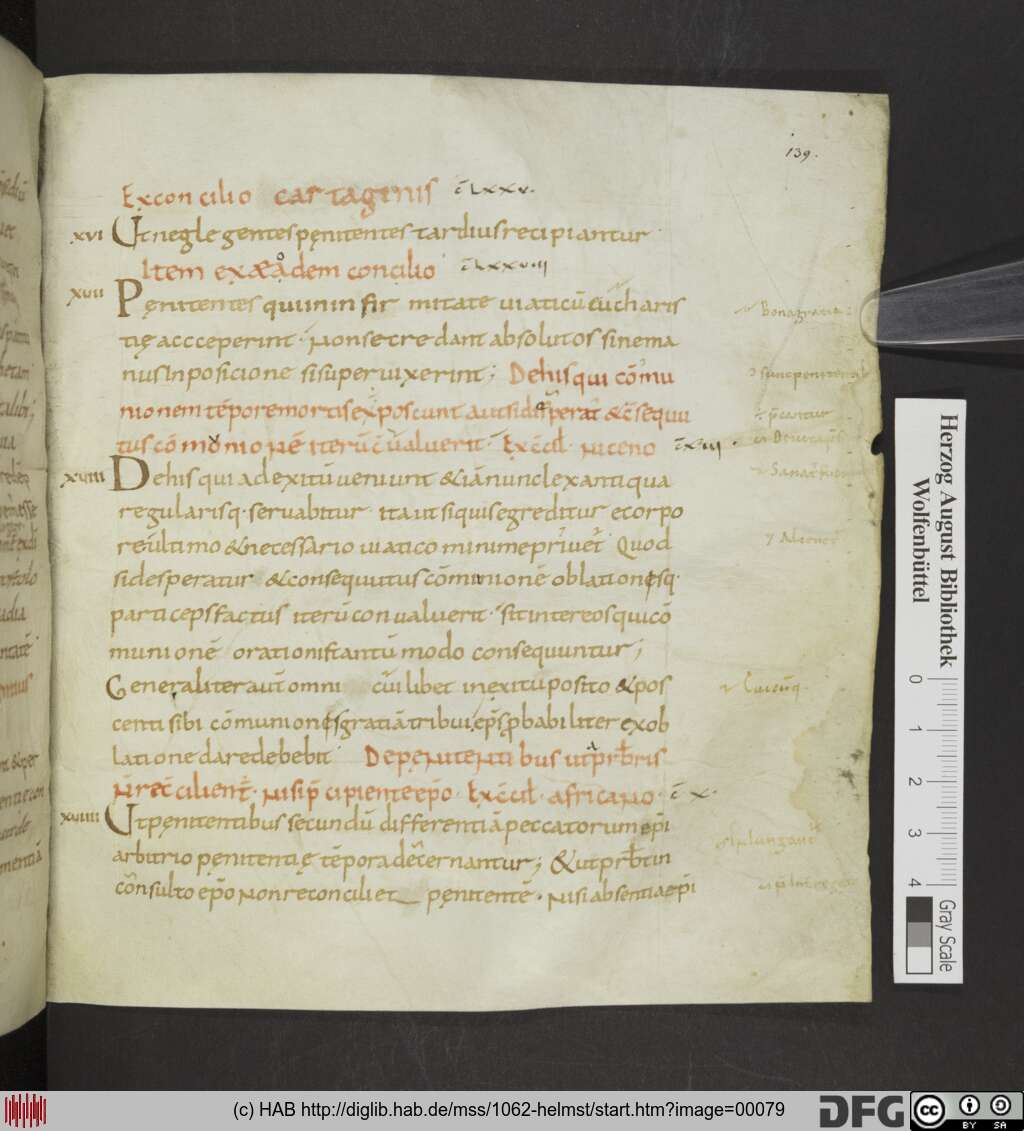 139.
Ex concilio cartagenis c̄ Lxxv.
xvi Ut neglegentes pęnitentes tardius recipiantur
Item ex eadem concilio c̄ Lxxviii
xvii Pęnitentes qui in infirmitate uiaticū eucharis
tię accceperint · Non se credant absolutos sine ma
nus inposicione si superuixerint; De his qui cōmu
nionem tēpore mortis exposcunt aut si desperat̄ & c̄sequu
tus cōmonionē iterū c̄ualuerit Ex c̄cil · niceno c̄ xiii ·
xviii De his qui ad exitū ueniunt & iā nunc lex antiqua
regularisq · seruabitur ita ut si quis egreditur e corpo
re ultimo & necessario uiatico minime priuet̄ Quod
si desperatur & consequutus cōmunionē oblationęsq ·
particeps factus iterū conualuerit · sit inter eos qui cō
munionē orationis tantū modo consequuntur;
Generaliter aut̄ omni cui libet in exitu posito & pos
centi sibi cōmunionęs gratiā tribui, ep̄s probabiliter ex ob
latione dare debebit De penitentibus ut a pr̄bris
N̄ rec̄cilient̄ · nisi p̄cipiente ep̄o · Ex c̄cil · africano · c̄ x ·
xviiii Ut pęnitentibus secundū differentiā peccatorum ep̄i
arbitrio pęnitentię tēpora dec̄ernantur; & ut pr̄bt in
consulto ep̄o non reconciliet pęnitentē · nisi absentia ep̄i
Herzog August Bibliothek
Wolfenbüttel
0 1 2 3 4
Gray Scale
(c) HAB http://diglib.hab.de/mss/1062-helmst/start.htm?image=00079
DFG
cc BY SA